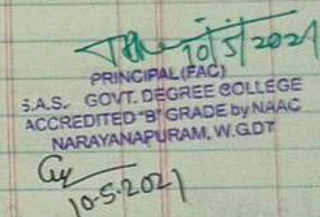 10/5/2021
PRINCIPAL (FAC)
S.A.S. GOVT. DEGREE COLLEGE
ACCREDITED "B" GRADE by NAAC
NARAYANAPURAM, W.G.DT
10-5-2021